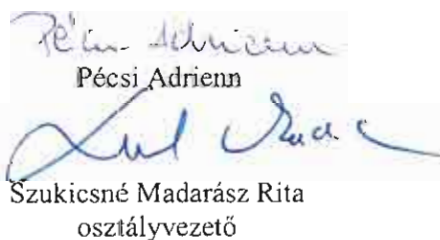 Pécsi Adrienn
Pécsi Adrienn
Szukicsné Madarász Rita
osztályvezető